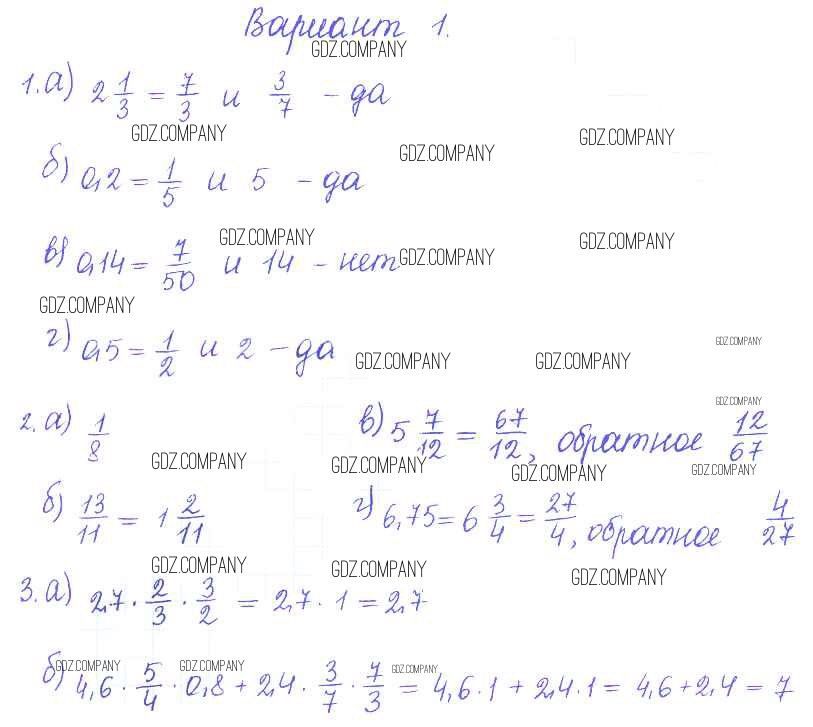 Вариант 1.
GDZ.COMPANY
1. а) 2 1/3 = 7/3 и 3/7 – да
GDZ.COMPANY GDZ.COMPANY GDZ.COMPANY
б) 0,2 = 1/5 и 5 – да
GDZ.COMPANY GDZ.COMPANY
в) 0,14 = 7/50 и 14 – нет GDZ.COMPANY
GDZ.COMPANY
г) 0,5 = 1/2 и 2 – да
GDZ.COMPANY GDZ.COMPANY GDZ.COMPANY
GDZ.COMPANY
2. а) 1/8 в) 5 7/12 = 67/12, обратное 12/67
GDZ.COMPANY GDZ.COMPANY GDZ.COMPANY GDZ.COMPANY
б) 13/11 = 1 2/11 г) 6,75 = 6 3/4 = 27/4, обратное 4/27
GDZ.COMPANY GDZ.COMPANY GDZ.COMPANY
3. а) 2,7 · 2/3 · 3/2 = 2,7 · 1 = 2,7
GDZ.COMPANY GDZ.COMPANY GDZ.COMPANY
б) 4,6 · 5/4 · 0,8 + 2,4 · 3/7 · 7/3 = 4,6 · 1 + 2,4 · 1 = 4,6 + 2,4 = 7